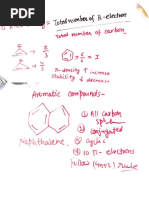 = Total number of π-electron
Total number of carbon
→ 2/3
→ 4/3
= 6/6 = 1
π-density ↑ increase
Stability ↓ decrease
Aromatic compounds -
① All carbon
sp²
② Conjugated
③ cyclic
④ 10 π- electrons
Naphthalene
follow (4n+2) rule